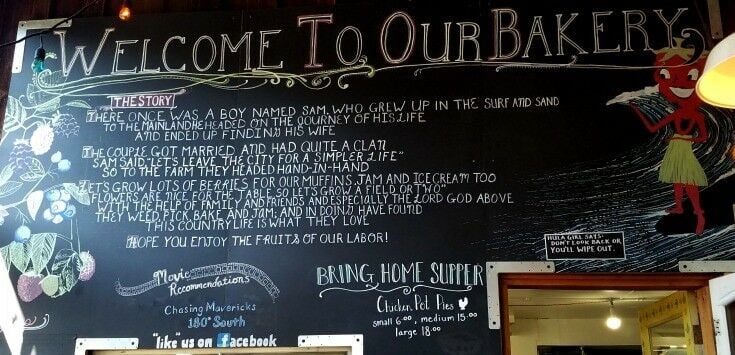 WELCOME TO OUR BAKERY
THE STORY
THERE ONCE WAS A BOY NAMED SAM, WHO GREW UP IN THE SURF AND SAND
TO THE MAINLAND HE HEADED ON THE JOURNEY OF HIS LIFE
AND ENDED UP FINDING HIS WIFE
THE COUPLE GOT MARRIED AND HAD QUITE A CLAN
SAM SAID "LET'S LEAVE THE CITY FOR A SIMPLER LIFE"
SO TO THE FARM THEY HEADED HAND-IN-HAND
"LET'S GROW LOTS OF BERRIES FOR OUR MUFFINS, JAM AND ICE CREAM TOO
FLOWERS ARE NICE FOR THE TABLE, SO LETS GROW A FIELD OR TWO"
WITH THE HELP OF FAMILY AND FRIENDS AND ESPECIALLY THE LORD GOD ABOVE
THEY WEED, PICK, BAKE AND JAM; AND IN DOING HAVE FOUND
THIS COUNTRY LIFE IS WHAT THEY LOVE
HOPE YOU ENJOY THE FRUITS OF OUR LABOR!
HULA GIRL SAYS:
DON'T LOOK BACK OR
YOU'LL WIPE OUT.
Movie
Recommendations
Chasing Mavericks
180° South
"like" us on facebook
BRING HOME SUPPER
Chicken Pot Pies
small 6.00, medium 15.00
large 18.00